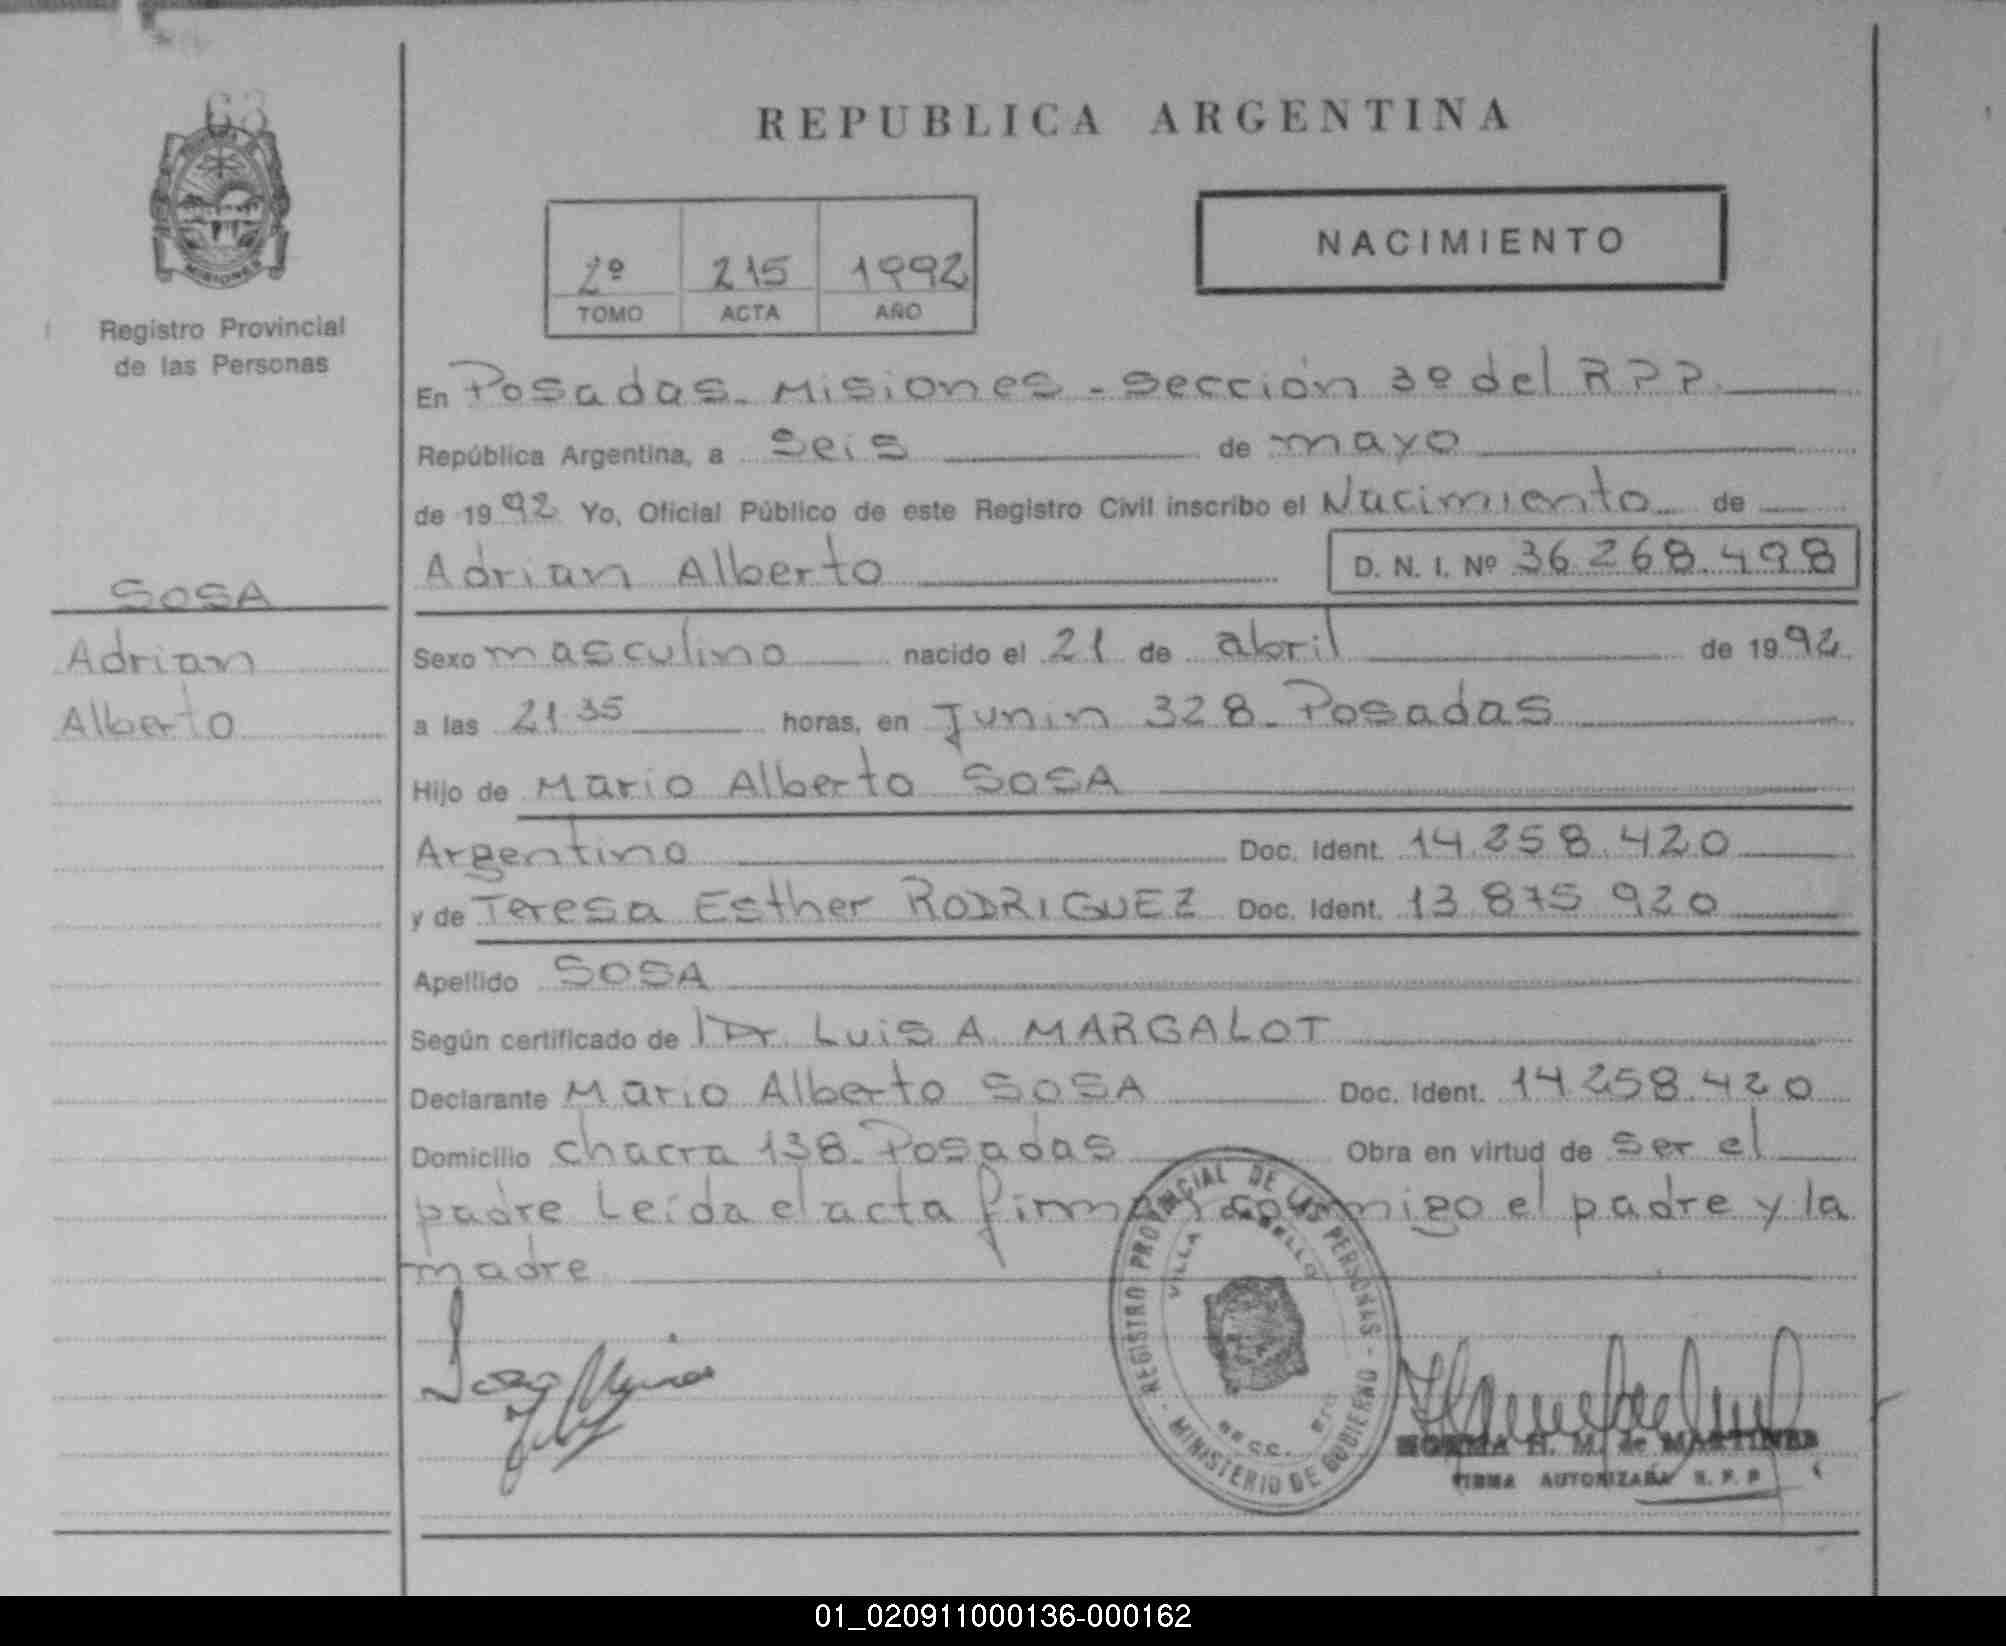 63
REPUBLICA ARGENTINA
MISIONES
Registro Provincial
de las Personas
2º 215 1992
TOMO ACTA AÑO
NACIMIENTO
En Posadas. Misiones - Sección 3º del R P P.
República Argentina, a Seis de mayo
de 1992 Yo, Oficial Público de este Registro Civil inscribo el Nacimiento de
Adrian Alberto D. N. I. Nº 36.268.498
SOSA
Adrian
Alberto
Sexo masculino nacido el 21 de abril de 1992
a las 21.35 horas, en Junin 328. Posadas
Hijo de Mario Alberto SOSA
Argentino Doc. Ident. 14.258.420
y de Teresa Esther RODRIGUEZ Doc. Ident. 13.875.920
Apellido SOSA
Según certificado de Dr. Luis A. MARGALOT
Declarante Mario Alberto SOSA Doc. Ident. 14.258.420
Domicilio chacra 138. Posadas Obra en virtud de ser el
padre Leída el acta firman conmigo el padre y la
madre
REGISTRO PROVINCIAL DE LAS PERSONAS - MINISTERIO DE GOBIERNO -
VILLA CABELLO
SECC.
NORMA H. M. de MARTINEZ
FIRMA AUTORIZADA R. P. P
01_020911000136-000162